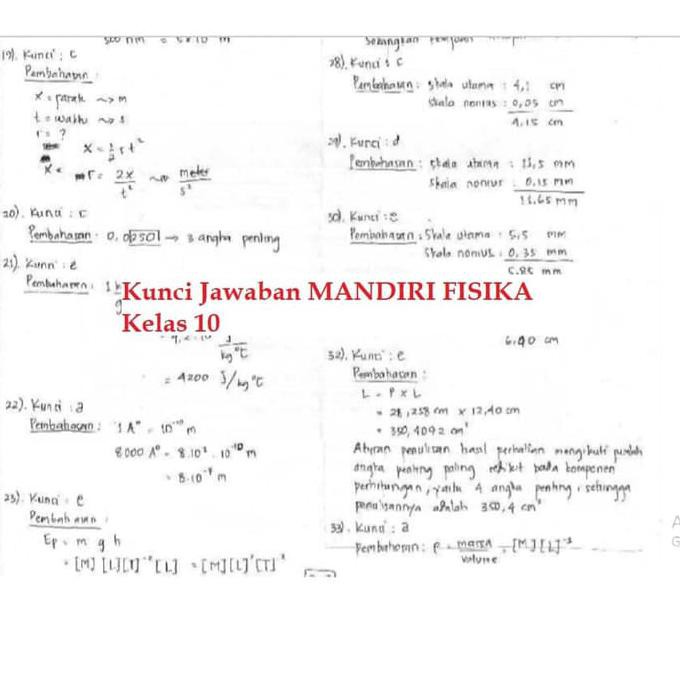 500 nm = 5x10 m
19). Kunci : c
Pembahasan :
x = jarak ~> m
t = waktu ~> s
r = ?
x = 1/2 rt²
r = 2x/t² ~> meter/s²
20). Kunci : c
Pembahasan : 0,02501 → 3 angka penting
21). Kunci : e
Pembahasan :
J/kg°C
= 4200 J/kg°C
22). Kunci : a
Pembahasan : 1 A° = 10⁻¹⁰ m
8000 A° = 8.10³ . 10⁻¹⁰ m
= 8.10⁻⁷ m
23). Kunci : e
Pembahasan :
Ep = m g h
= [M] [L][T]⁻² [L] = [M][L]²[T]⁻²
Kunci Jawaban MANDIRI FISIKA
Kelas 10
Sedangkan
28). Kunci : c
Pembahasan : skala utama : 4,1 cm
skala nonius : 0,05 cm
4,15 cm
29). Kunci : d
Pembahasan : skala utama : 11,5 mm
skala nonius : 0,15 mm
11,65 mm
30). Kunci : e
Pembahasan : Skala utama : 5,5 mm
Skala nonius : 0,35 mm
5,85 mm
6,40 cm
32). Kunci : e
Pembahasan :
L = P x L
= 28,258 cm x 12,40 cm
= 350,4092 cm²
Aturan penulisan hasil perkalian mengikuti jumlah
angka penting paling sedikit pada komponen
perhitungan, yaitu 4 angka penting, sehingga
penulisannya adalah 350,4 cm²
33). Kunci : a
Pembahasan : ρ = massa/volume = [M][L]⁻³